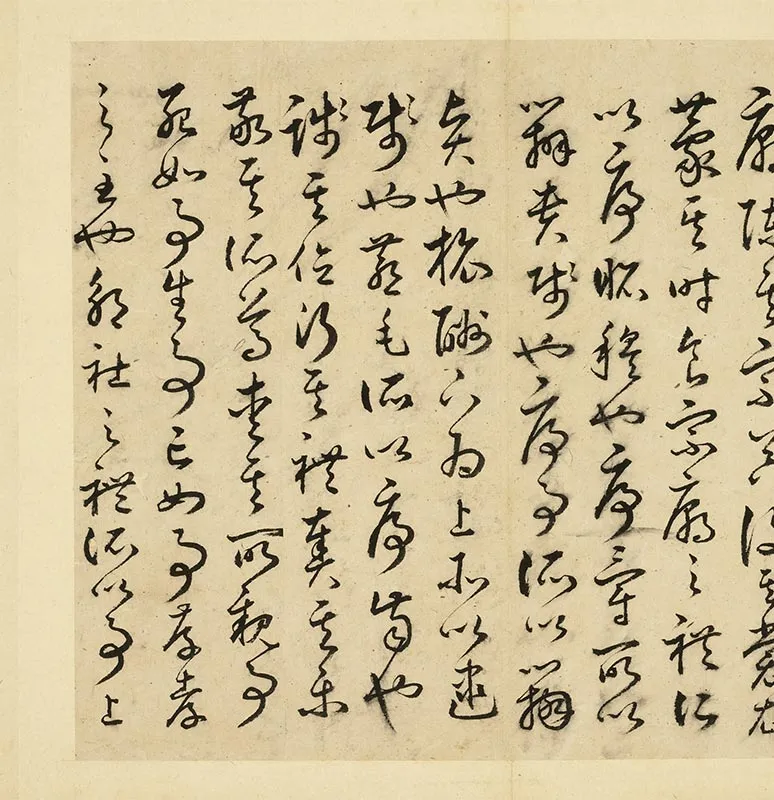 廟陳其宗器設其裳衣
薦其時食宗廟之禮所
以序昭穆也序爵所以
辨貴賤也序事所以辨
賢也旅酬下為上所以逮
賤也燕毛所以序齒也
踐其位行其禮奏其樂
敬其所尊愛其所親事
死如事生事亡如事存孝
之至也郊社之禮所以事上